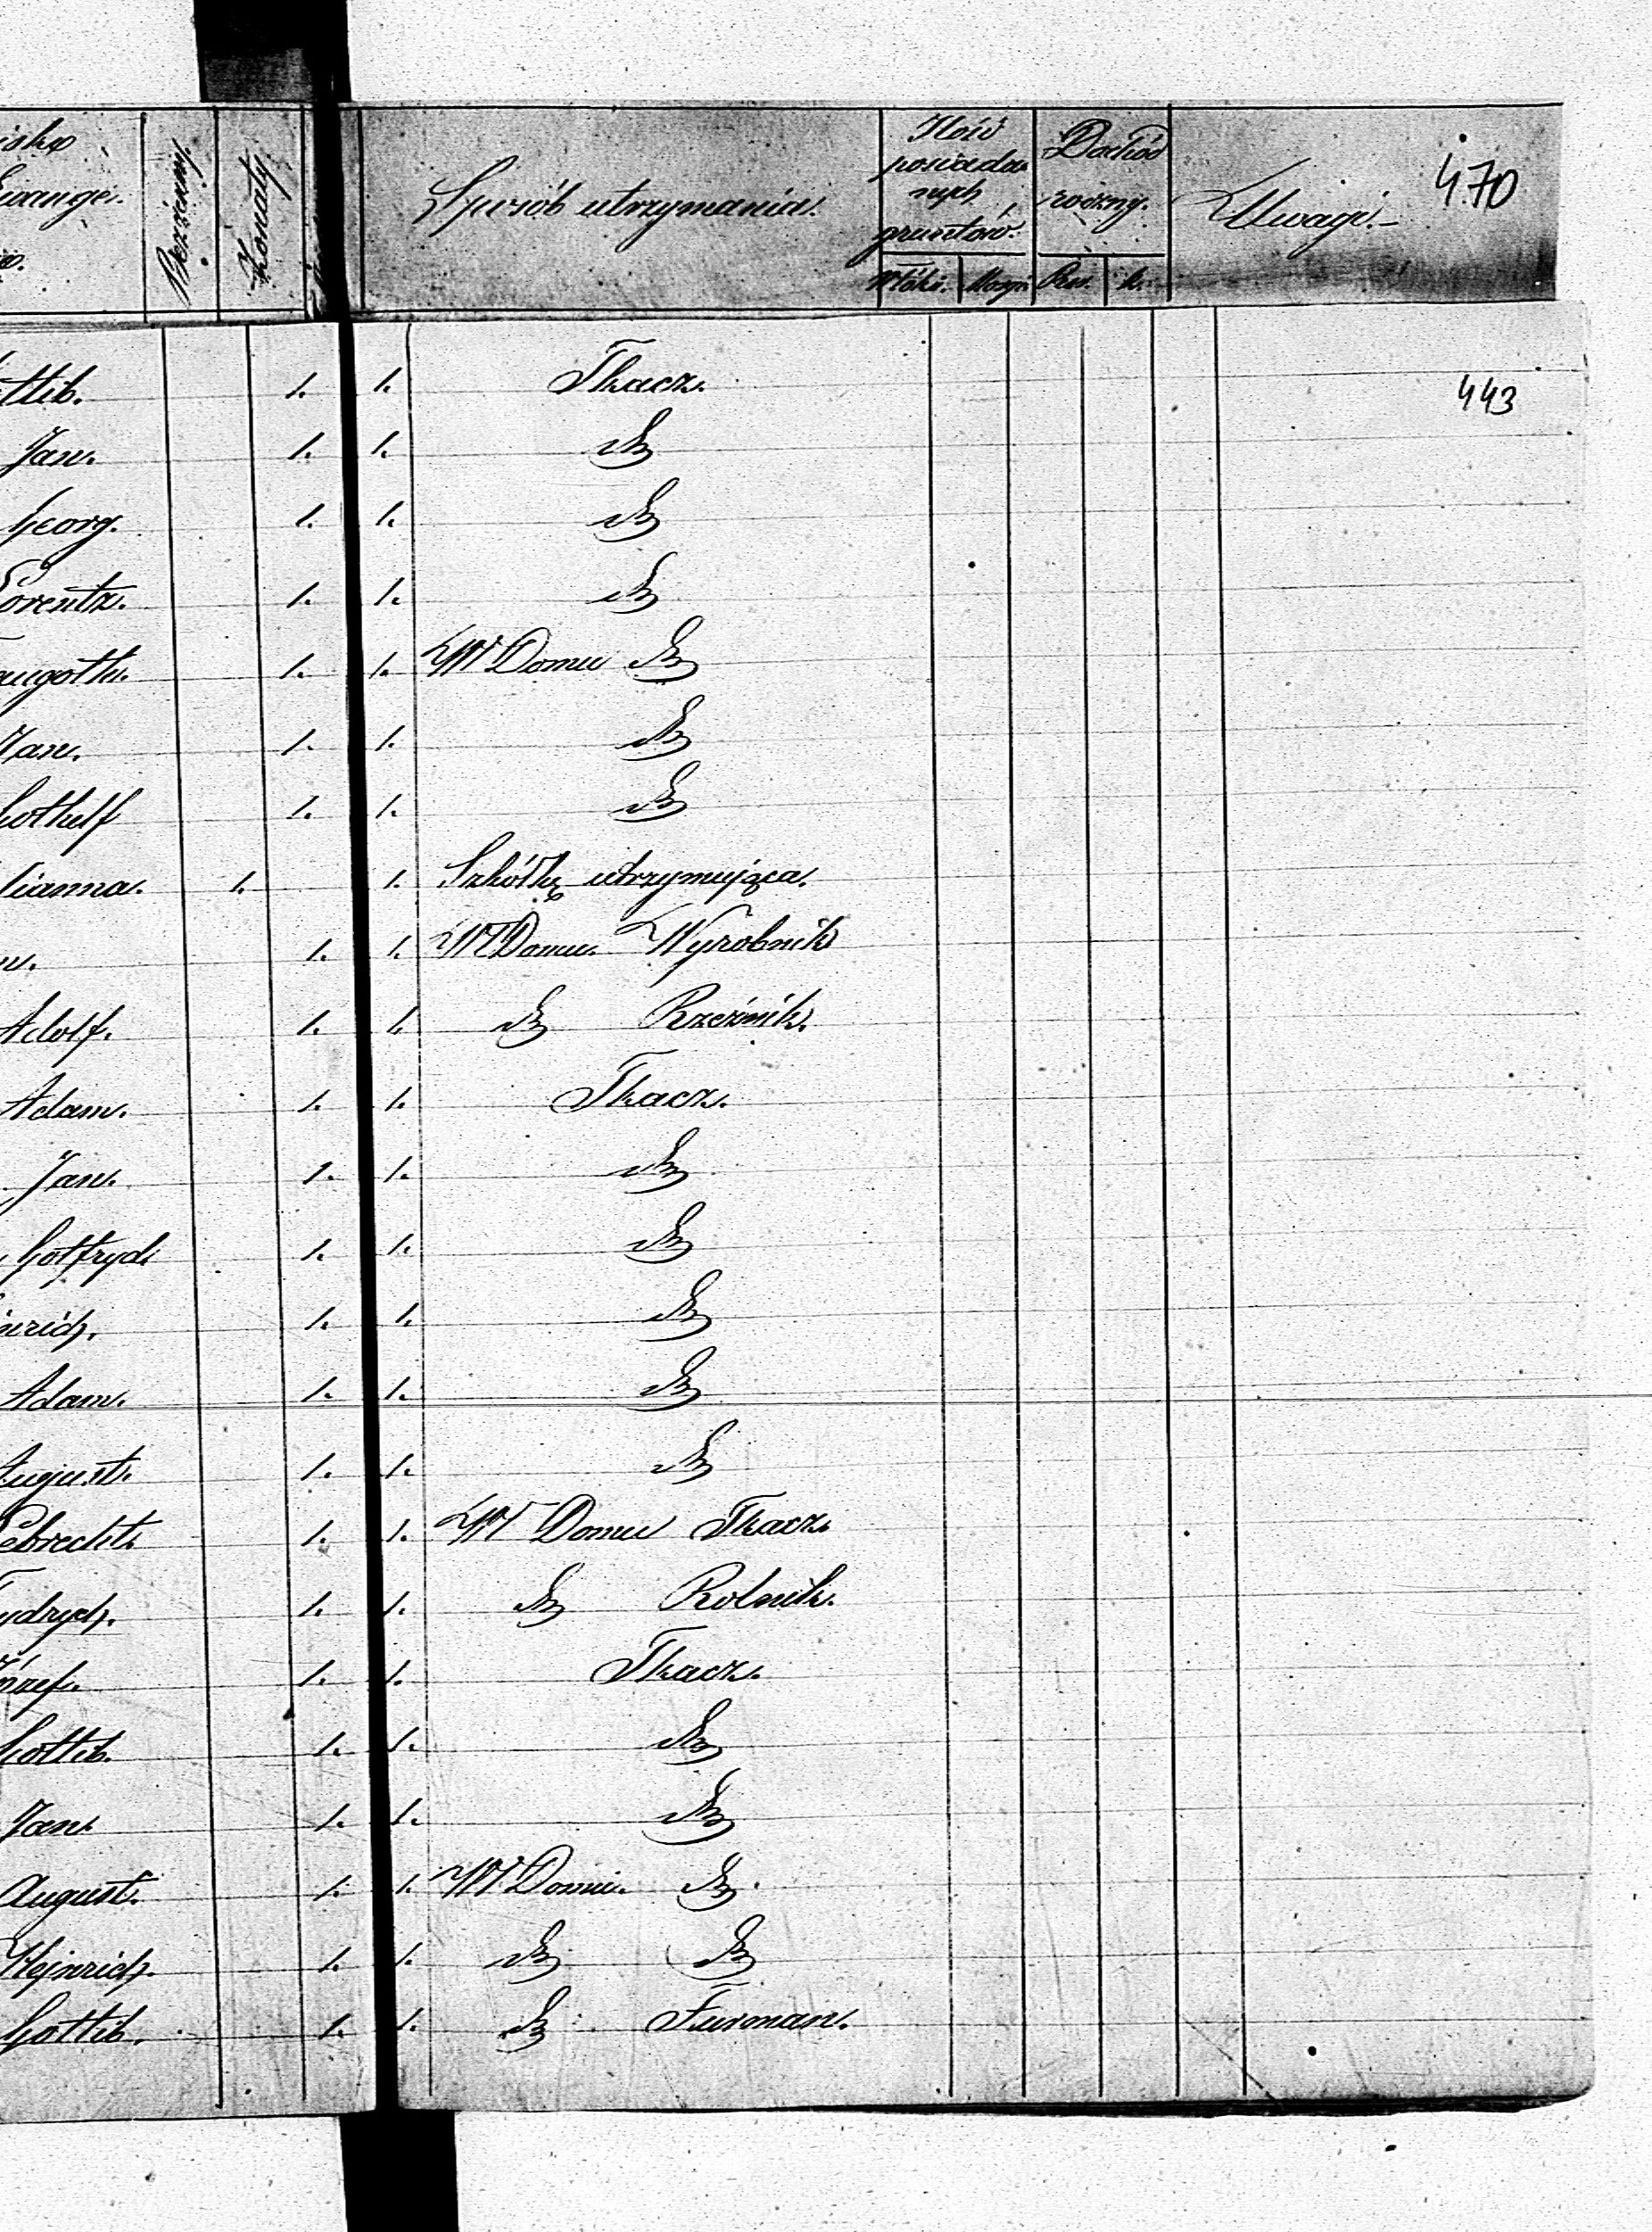 isko
Ewange.
o.
Bezżenny.
Żonaty
Sposób utrzymania.
Ilość
posiada
nych
gruntów.
Włók. Morgi
Dochód
roczny.
Rsr. k.
Uwagi.-
470
443
ttlib. 1. 1. Tkacz.
Jan. 1. 1. dto
Georg. 1. 1. dto
Lorentz. 1. 1. dto
augoth. 1. 1. W Domu dto
Jan. 1. 1. dto
Gothelf 1. 1. dto
lianna. 1. 1. Szkółkę utrzymująca.
n. 1. 1. W Domu. Wyrobnik
Adolf. 1. 1. dto Rzeźnik.
Adam. 1. 1. Tkacz.
Jan. 1. 1. dto
Gotfryd 1. 1. dto
inrich. 1. 1. dto
Adam. 1. 1. dto
August. 1. 1. dto
Lebrecht. 1. 1. W Domu Tkacz.
ydrych. 1. 1. dto Rolnik.
Józef. 1. 1. Tkacz.
Gottlib. 1. 1. dto
Jan 1. 1. dto
August. 1. 1. W Domu. dto
Hejnrich. 1. 1. dto dto
Gottlib. 1. 1. dto Furman.